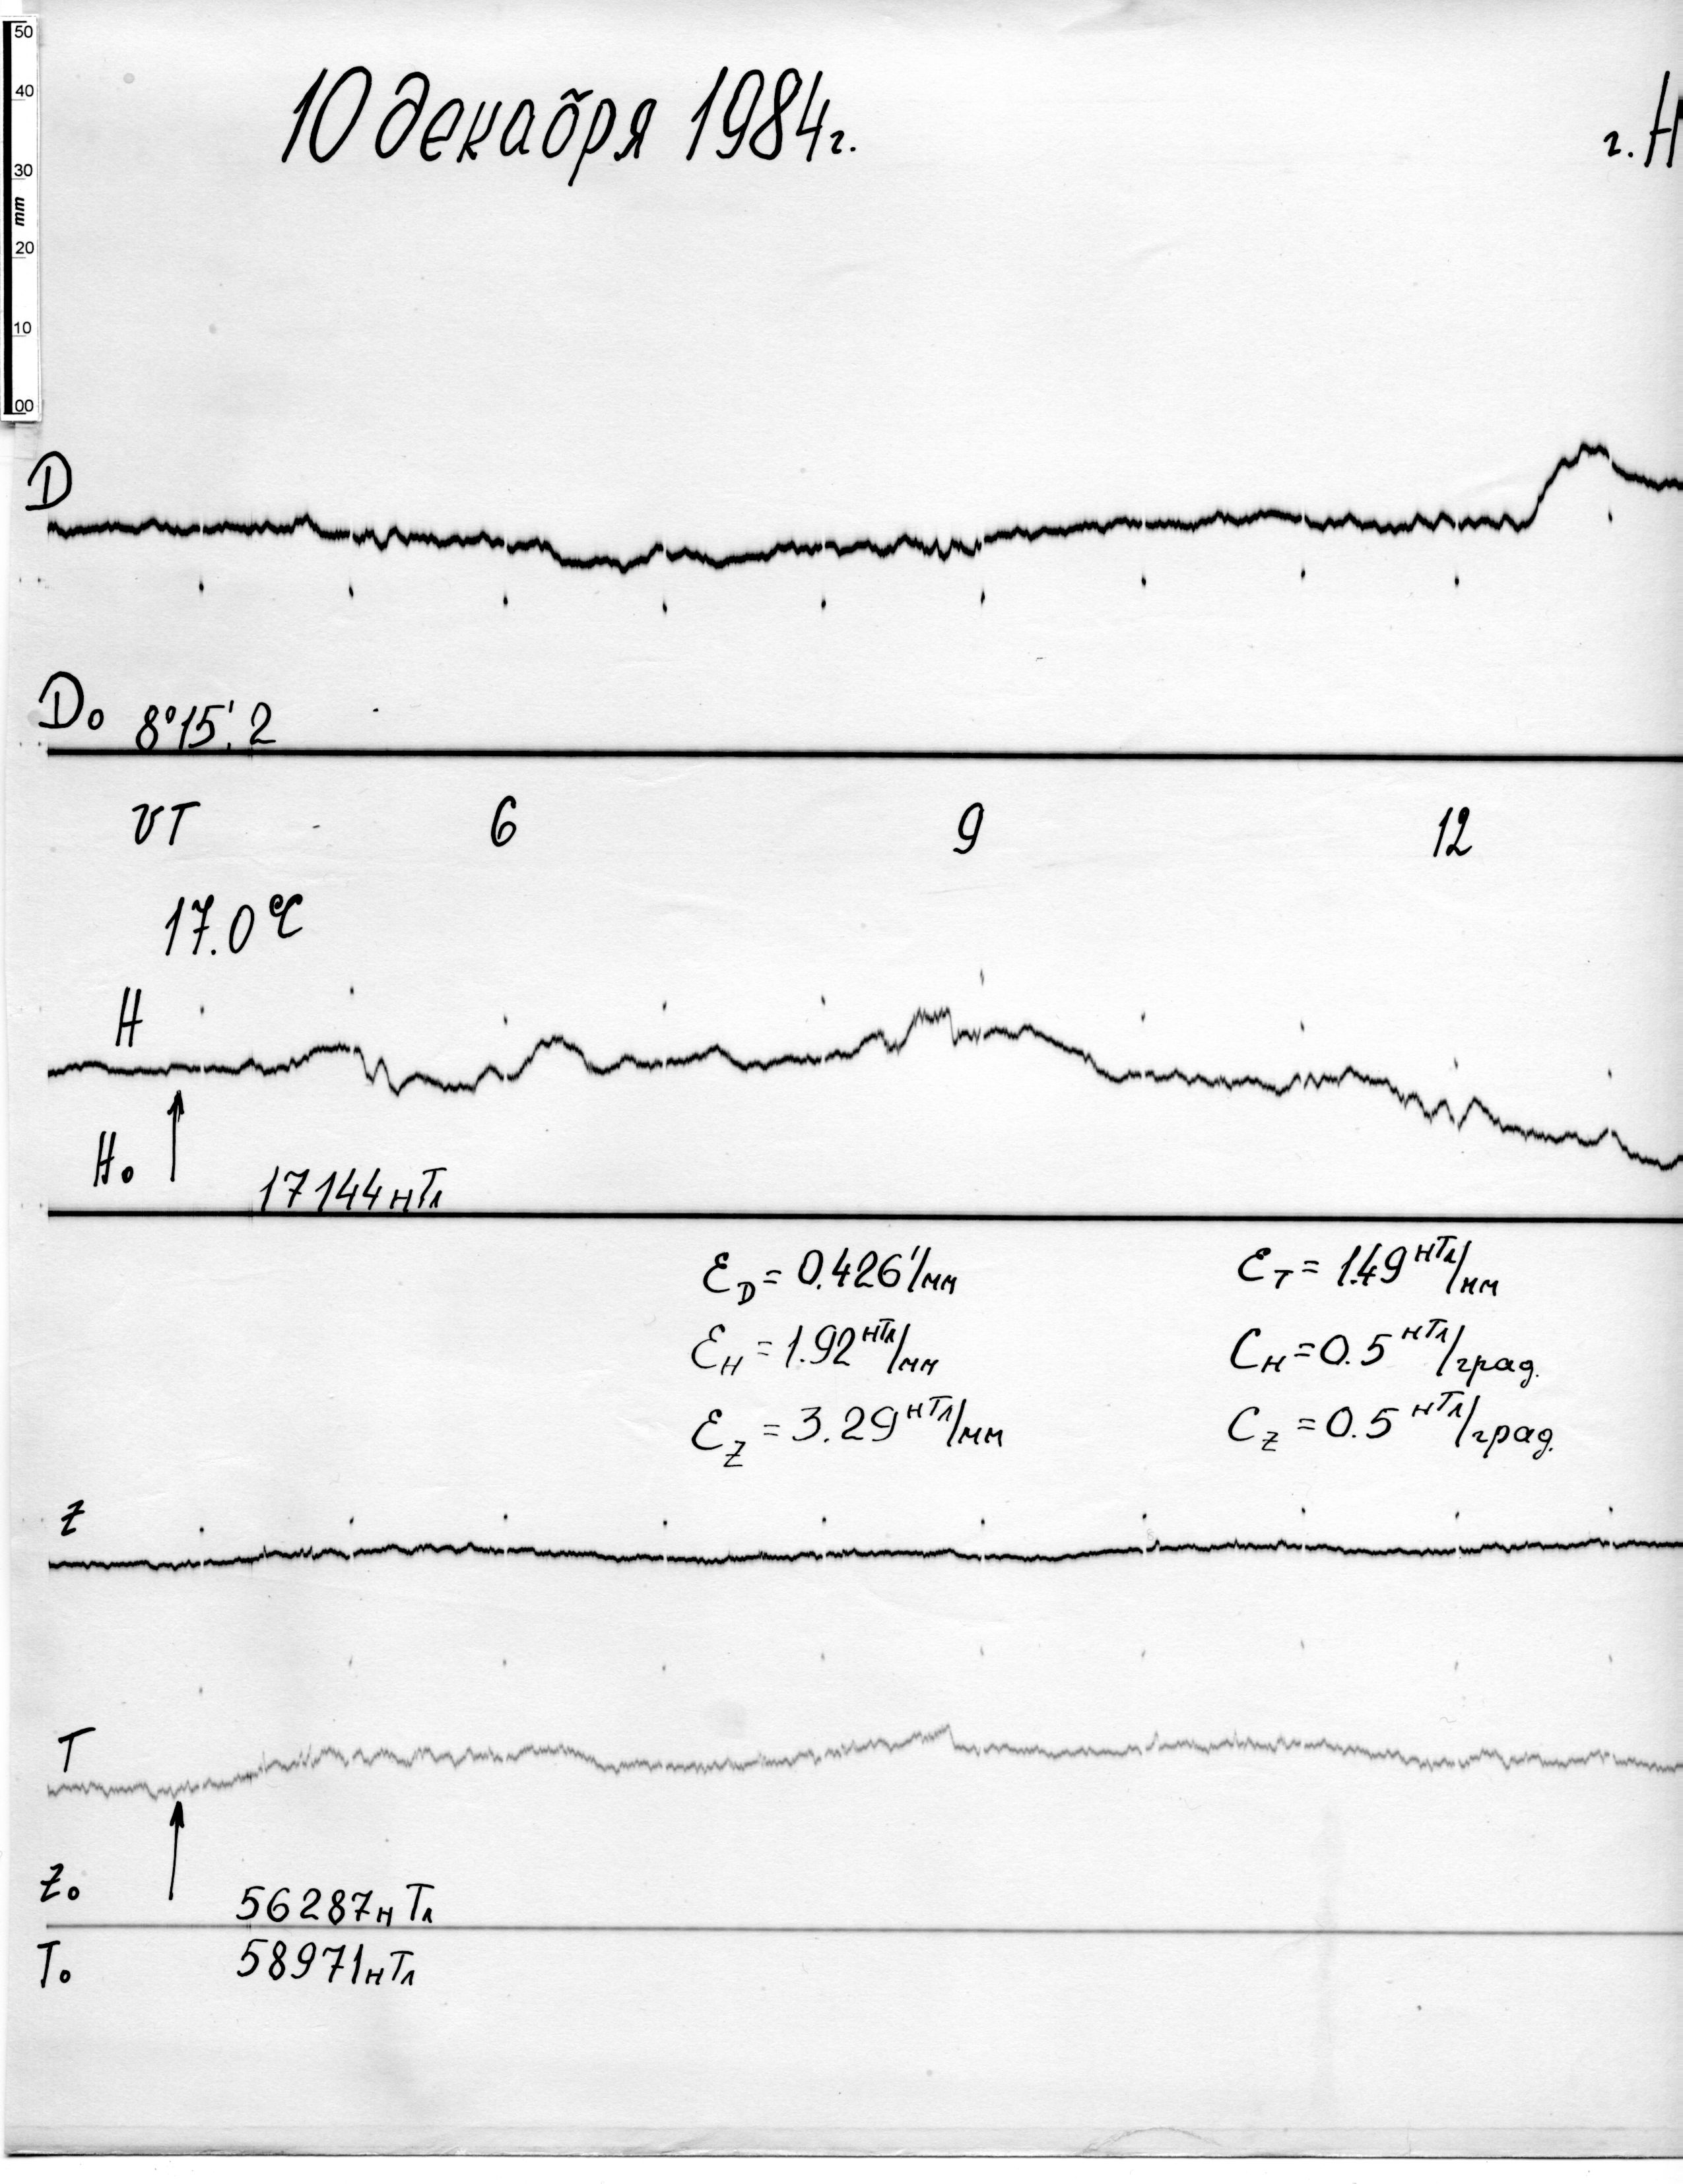 50
40
30
mm
20
10
00
10 декабря 1984г.
г. Н
D
D₀ 8°15'.2
UT 6 9 12
17.0°C
H
H₀ 17144 нТл
Ɛ_D = 0.426'/мм Ɛ_T = 1.49 нТл/мм
Ɛ_H = 1.92 нТл/мм C_H = 0.5 нТл/град.
Ɛ_Z = 3.29 нТл/мм C_Z = 0.5 нТл/град.
Z
T
Z₀ 56287 нТл
T₀ 58971 нТл